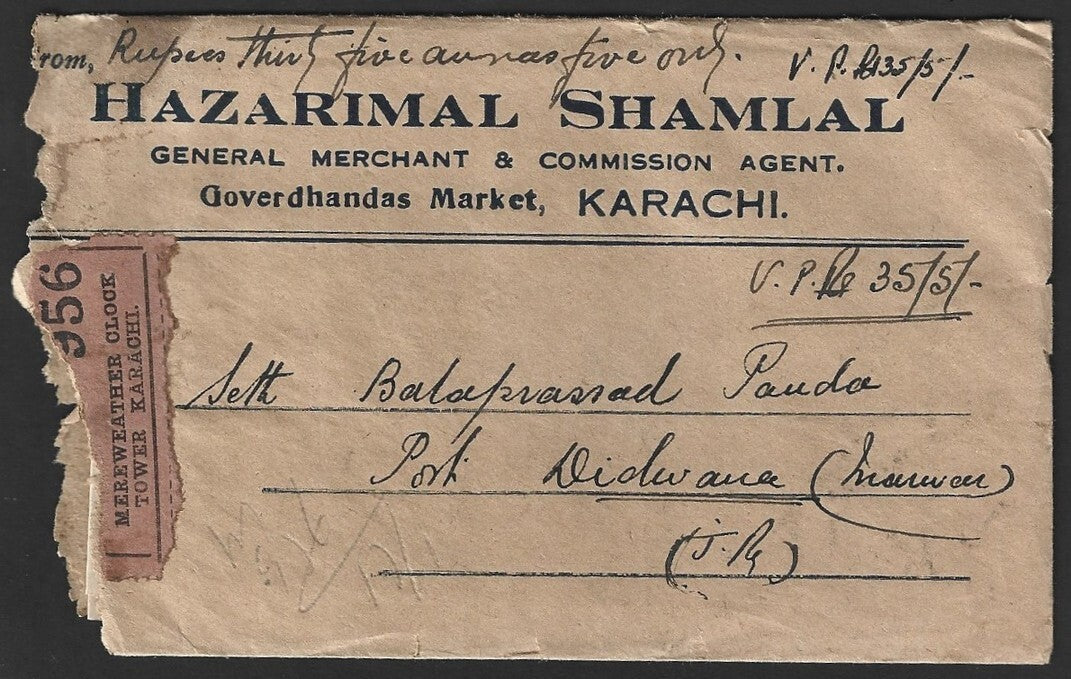 rom, Rupees thirty five annas five only. V. P. Rs 35/5/-
HAZARIMAL SHAMLAL
GENERAL MERCHANT & COMMISSION AGENT.
Goverdhandas Market, KARACHI.
V. P. Rs 35/5/-
956
MEREWEATHER CLOCK
TOWER KARACHI.
Seth Balaprassad Panda
Post Didwana (Marwar)
(J. Ry)